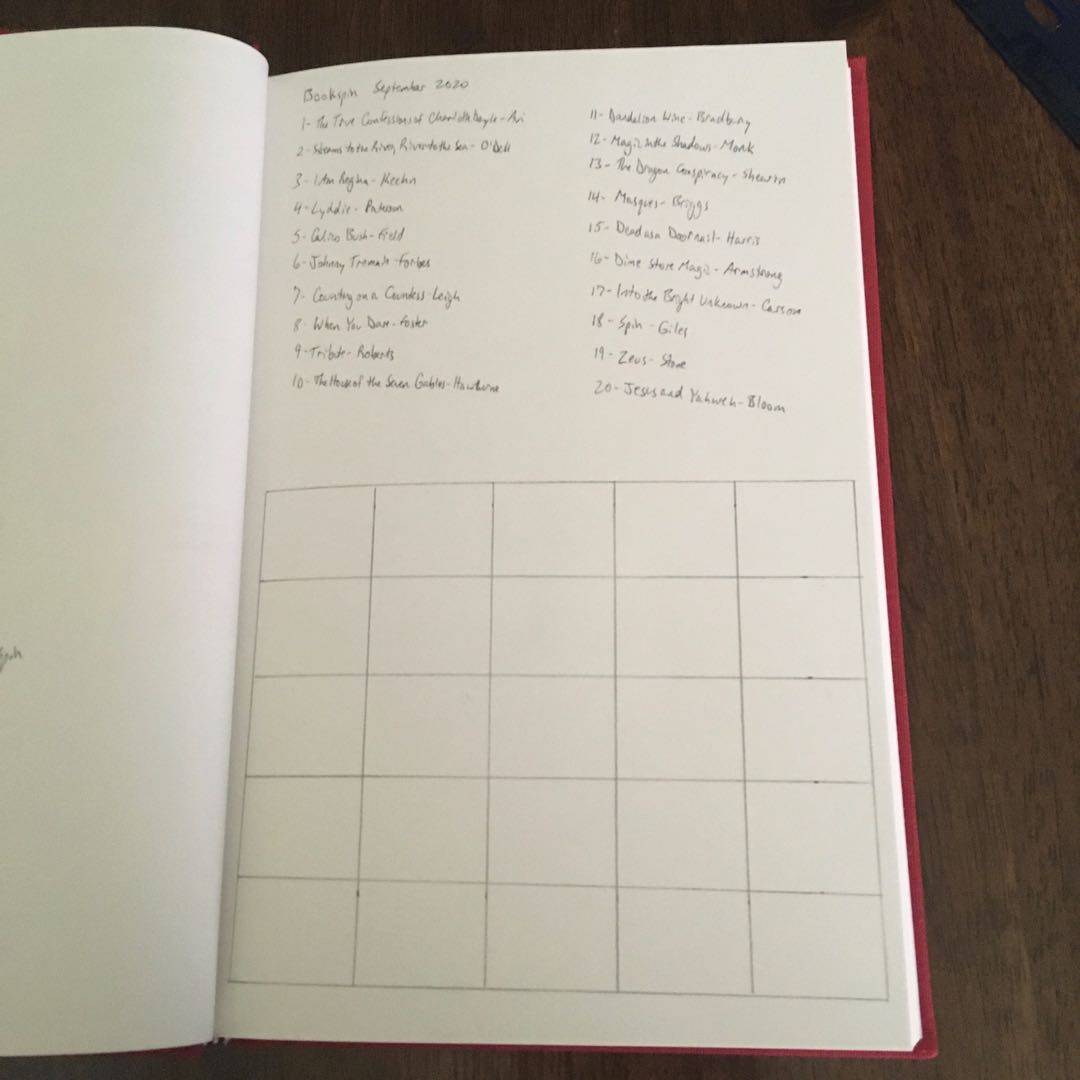 Bookspin September 2020
1- The True Confessions of Charlotte Doyle - Avi
2- Streams to the River, River to the Sea - O'Dell
3- I Am Regina - Keehn
4- Lyddie - Paterson
5- Calico Bush - Field
6- Johnny Tremain - Forbes
7- Counting on a Countess - Leigh
8- When You Dare - Foster
9- Tribute - Roberts
10- The House of the Seven Gables - Hawthorne
11- Dandelion Wine - Bradbury
12- Magic in the Shadows - Monk
13- The Dragon Conspiracy - Shearin
14- Masques - Briggs
15- Dead as a Doornail - Harris
16- Dime Store Magic - Armstrong
17- Into the Bright Unknown - Carson
18- Spin - Giles
19- Zeus - Stone
20- Jesus and Yahweh - Bloom